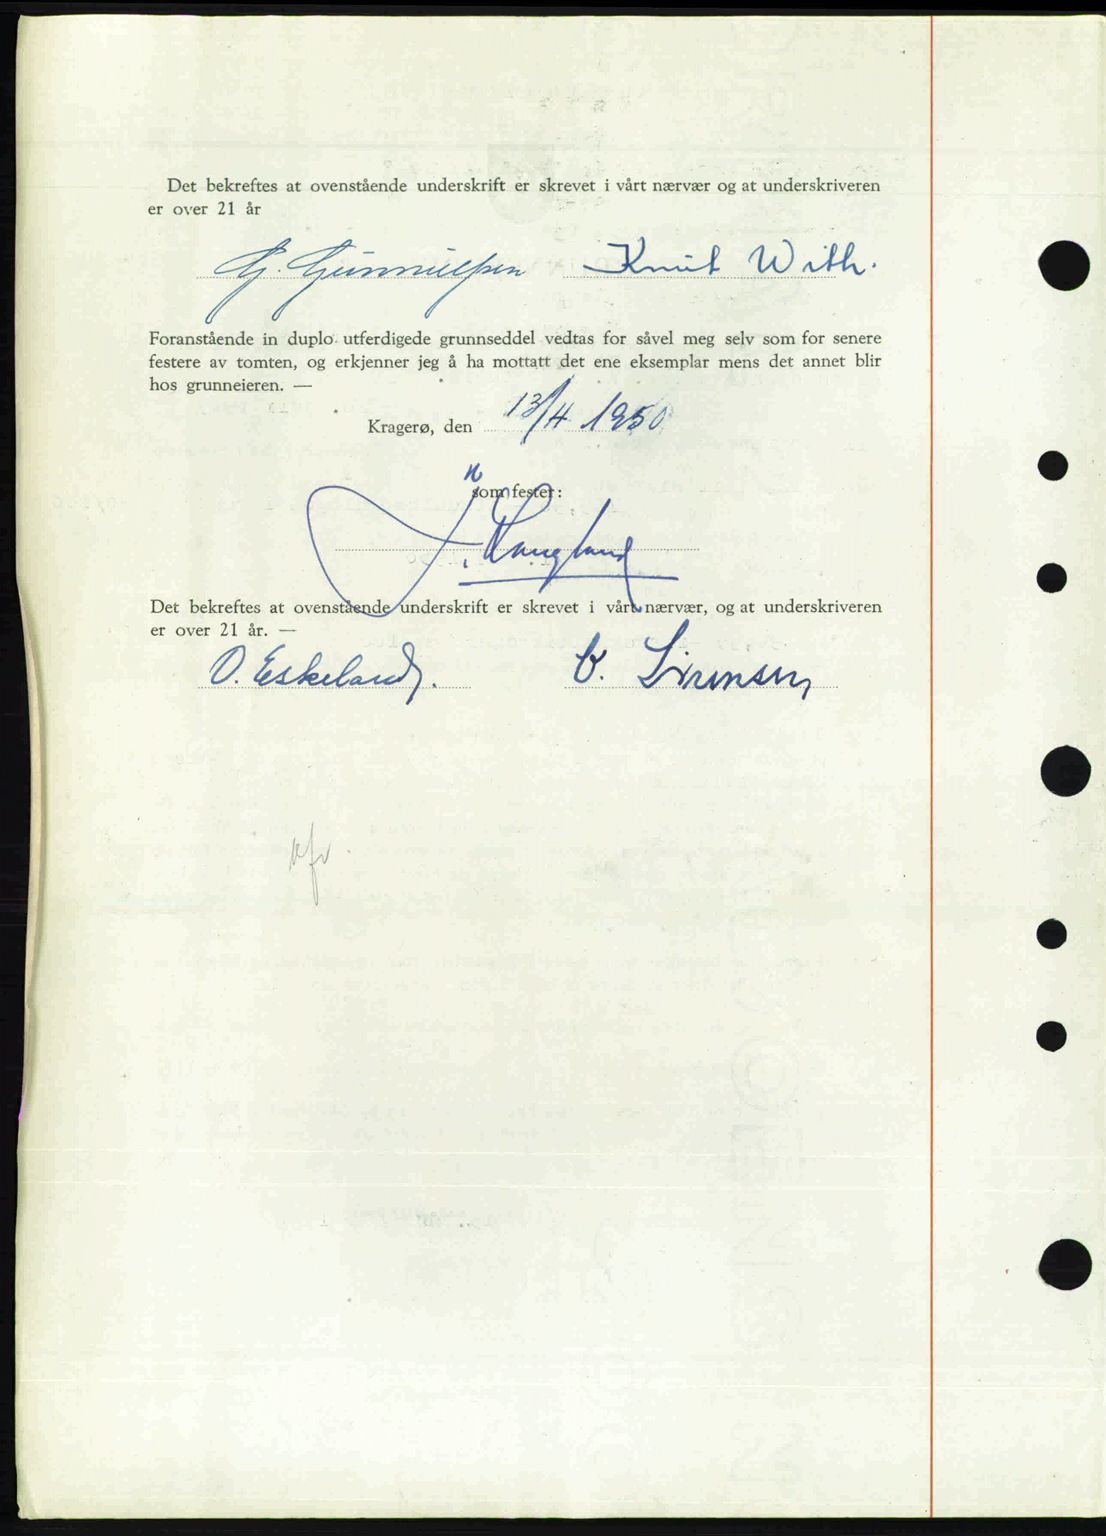 Det bekreftes at ovenstående underskrift er skrevet i vårt nærvær og at underskriveren
er over 21 år
G. Gunnulfsen Knut With.
Foranstående in duplo utferdigede grunnseddel vedtas for såvel meg selv som for senere
festere av tomten, og erkjenner jeg å ha mottatt det ene eksemplar mens det annet blir
hos grunneieren. —
Kragerø, den 13/4 1950
som fester:
J. Langland
Det bekreftes at ovenstående underskrift er skrevet i vårt nærvær, og at underskriveren
er over 21 år. —
O. Eskeland. O. Sørensen